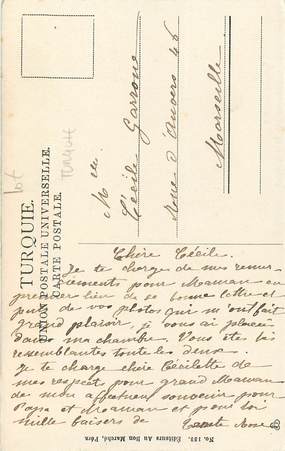 TURQUIE.
UNION POSTALE UNIVERSELLE.
CARTE POSTALE.
Lot
TURQUIE
Mlle
Cécile Garrone
Rue d'Anvers 46
Marseille
Chère Cécile.
Je te charge de mes remer-
ciements pour Maman en
premier lieu de sa bonne lettre et
puis de vos photos qui m'ont fait
grand plaisir, je vous ai placées
dans ma chambre. Vous êtes très
ressemblantes toute les deux.
Je te charge chère Cécilette de
mes respect pour grand Maman
de mon affectueu souvenir pour
Papa et Maman et pour toi
mille baisers de Tante Rose
No. 133. Éditeurs Au Bon Marché, Péra.